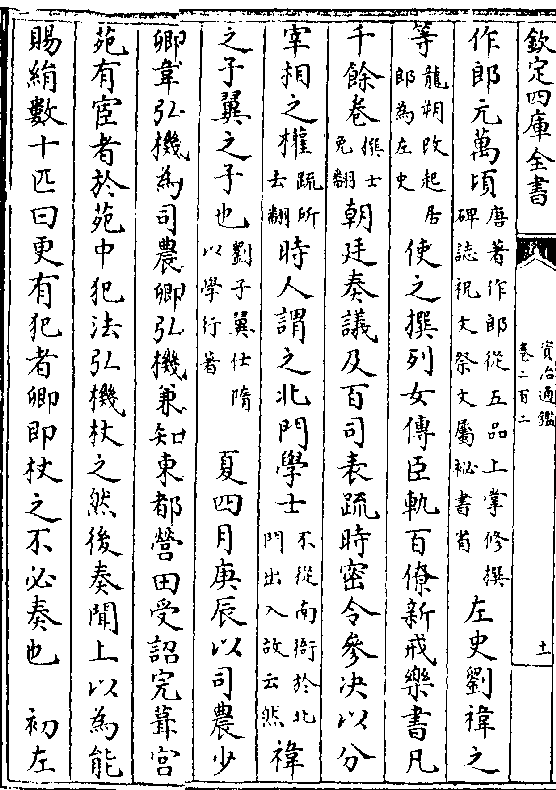 欽定四庫全書
資治通鑑
卷二百二
十一
作郎元萬頃唐著作郎從五品上掌修撰碑誌祝文祭文屬祕書省左史劉禕之
等龍朔改起居郎為左史使之撰列女傳臣軌百僚新戒樂書凡
千餘卷撰士免翻朝廷奏議及百司表疏時密令參決以分
宰相之權疏所去翻時人謂之北門學士不從南衙於北門出入故云然禕
之子翼之子也劉子翼仕隋以學行著 夏四月庚辰以司農少
卿韋弘機為司農卿弘機兼知東都營田受詔完葺宮
苑有宦者於苑中犯法弘機杖之然後奏聞上以為能
賜絹數十匹曰更有犯者卿即杖之不必奏也 初左